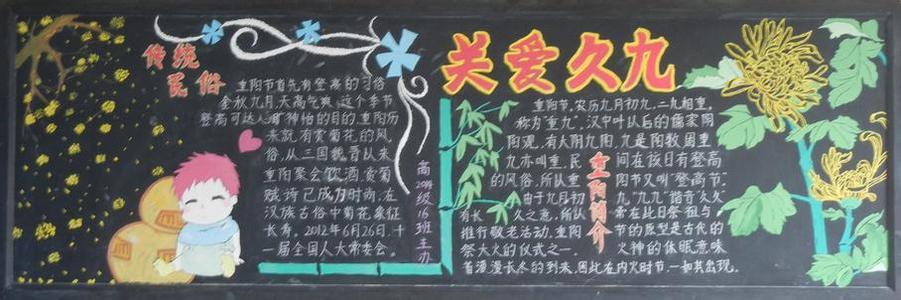 传统
民俗
重阳节首先有登高的习俗
金秋九月,天高气爽,这个季节
登高可达心旷神怡的目的,重阳历
来就有赏菊花的风
俗,从三国魏晋以来
重阳聚会饮酒,赏菊
赋诗已成为时尚,在
汉族古俗中菊花象征
长寿。2012年6月26日,十
一届全国人大常委会。
高2014级16班主办
关爱久九
重阳节,农历九月初九,二九相重,
称为"重九",汉中叶以后的儒家阴
阳观,有六阴九阳,九是阳数,因重
九亦叫重
民间在该日有登高
的风俗,所以重
阳节又叫"登高节"。
由于九月初
九"九九"谐音"久久"
有长
久之意,所以
常在此日祭祖与
推行敬老活动,重阳
节的原型是古代的
祭大火的仪式之一
火神的休眠意味
着漫漫长冬的到来,因此,在内火时节,一如其出现。
重阳简介